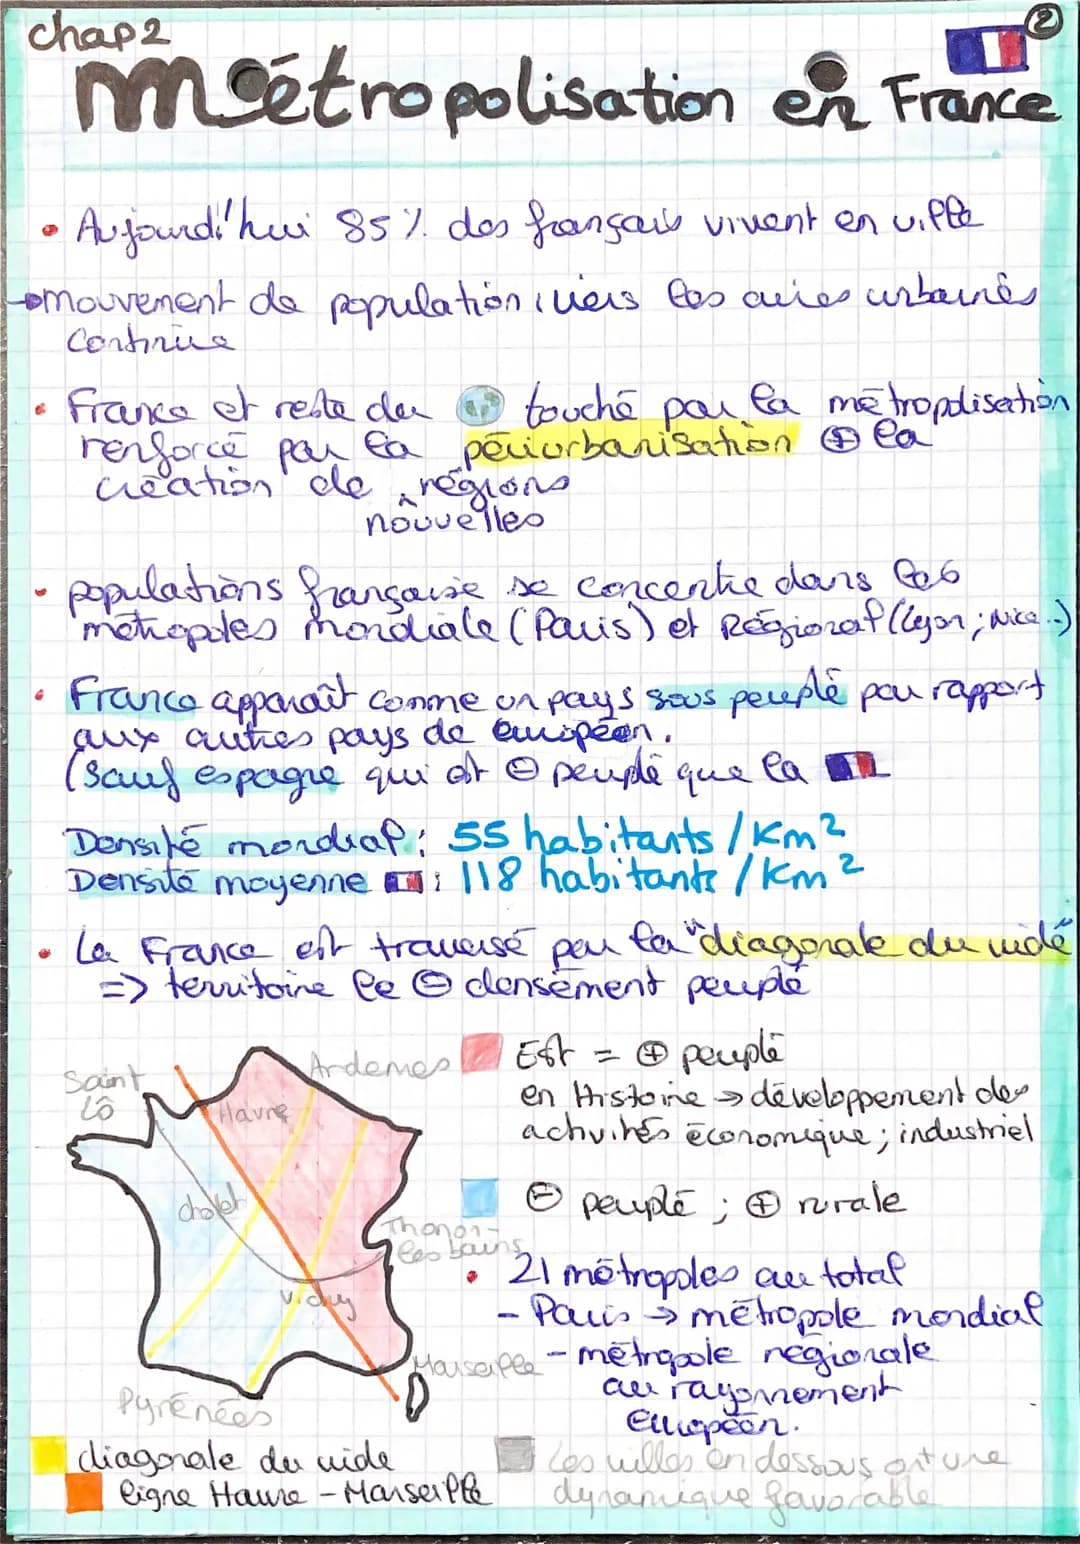 chap 2
2
Métropolisation en France
• Aujourd'hui 85% des français vivent en ville
→ mouvement de population vers les aires urbaines
continue
• France et reste du touché par la métropolisation
renforcé par la périurbanisation ⊕ la
création de ^ régions
nouvelles
• populations française se concentre dans les
métropoles mondiale (Paris) et Régional (Lyon ; Nice...)
• France apparaît comme un pays sous peuplé par rapport
aux autres pays de européen.
(sauf espagne qui est ⊖ peuplé que la
Densité mondial : 55 habitants / Km²
Densité moyenne : 118 habitants / Km²
• La France est traversé par la "diagonale du vide"
=> territoire le ⊖ densément peuplé
Saint
Lô
Ardennes
Havre
cholet
Thonon-
les bains
Vichy
Marseille
Pyrénées
Est = ⊕ peuplé
en Histoire → développement des
activités économique ; industriel
⊖ peuplé ; ⊕ rurale
• 21 métropoles au total
- Paris → métropole mondial
- métropole régionale
au rayonnement
Européen.
diagonale du vide
ligne Havre - Marseille
Les villes en dessous ont une
dynamique favorable